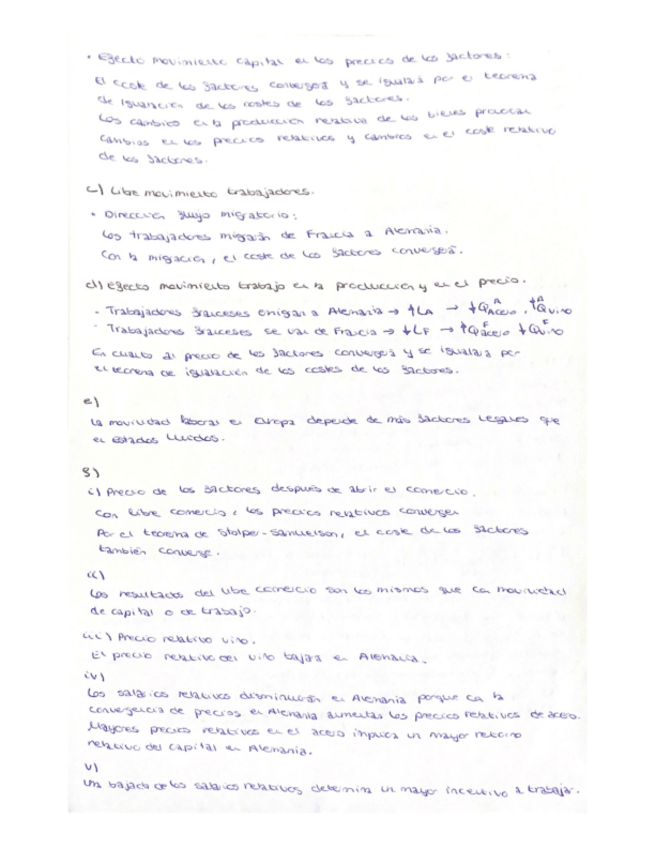 · Efecto movimiento capital en los precios de los factores:
El coste de los factores convergerá y se igualará por el teorema
de igualación de los costes de los factores.
Los cambios en la producción relativa de los bienes provocan
cambios en los precios relativos y cambios en el coste relativo
de los factores.
c) Libre movimiento trabajadores.
· Dirección flujo migratorio:
Los trabajadores migrarán de Francia a Alemania.
Con la migración, el coste de los factores convergerá.
d) Efecto movimiento trabajo en la producción y en el precio.
- Trabajadores franceses emigran a Alemania → ↑LA → ↓Q^A Acero, ↑Q^A Vino
- Trabajadores franceses se van de Francia → ↓LF → ↑Q^F acero ↓Q^F vino
En cuanto al precio de los factores convergerá y se igualará por
el teorema de igualación de los costes de los factores.
e)
La movilidad laboral en Europa depende de más factores legales que
en Estados Unidos.
f)
i) Precio de los factores después de abrir el comercio.
Con libre comercio, los precios relativos convergen
Por el teorema de Stolper-Samuelson, el coste de los factores
también converge.
ii)
Los resultados del libre comercio son los mismos que con movilidad
de capital o de trabajo.
iii) Precio relativo vino.
El precio relativo del vino bajará en Alemania.
iv)
Los salarios relativos disminuirán en Alemania porque con la
convergencia de precios en Alemania aumentan los precios relativos de acero.
Mayores precios relativos en el acero implica un mayor retorno
relativo del capital en Alemania.
v)
Una bajada de los salarios relativos, determina un mayor incentivo a trabajar.